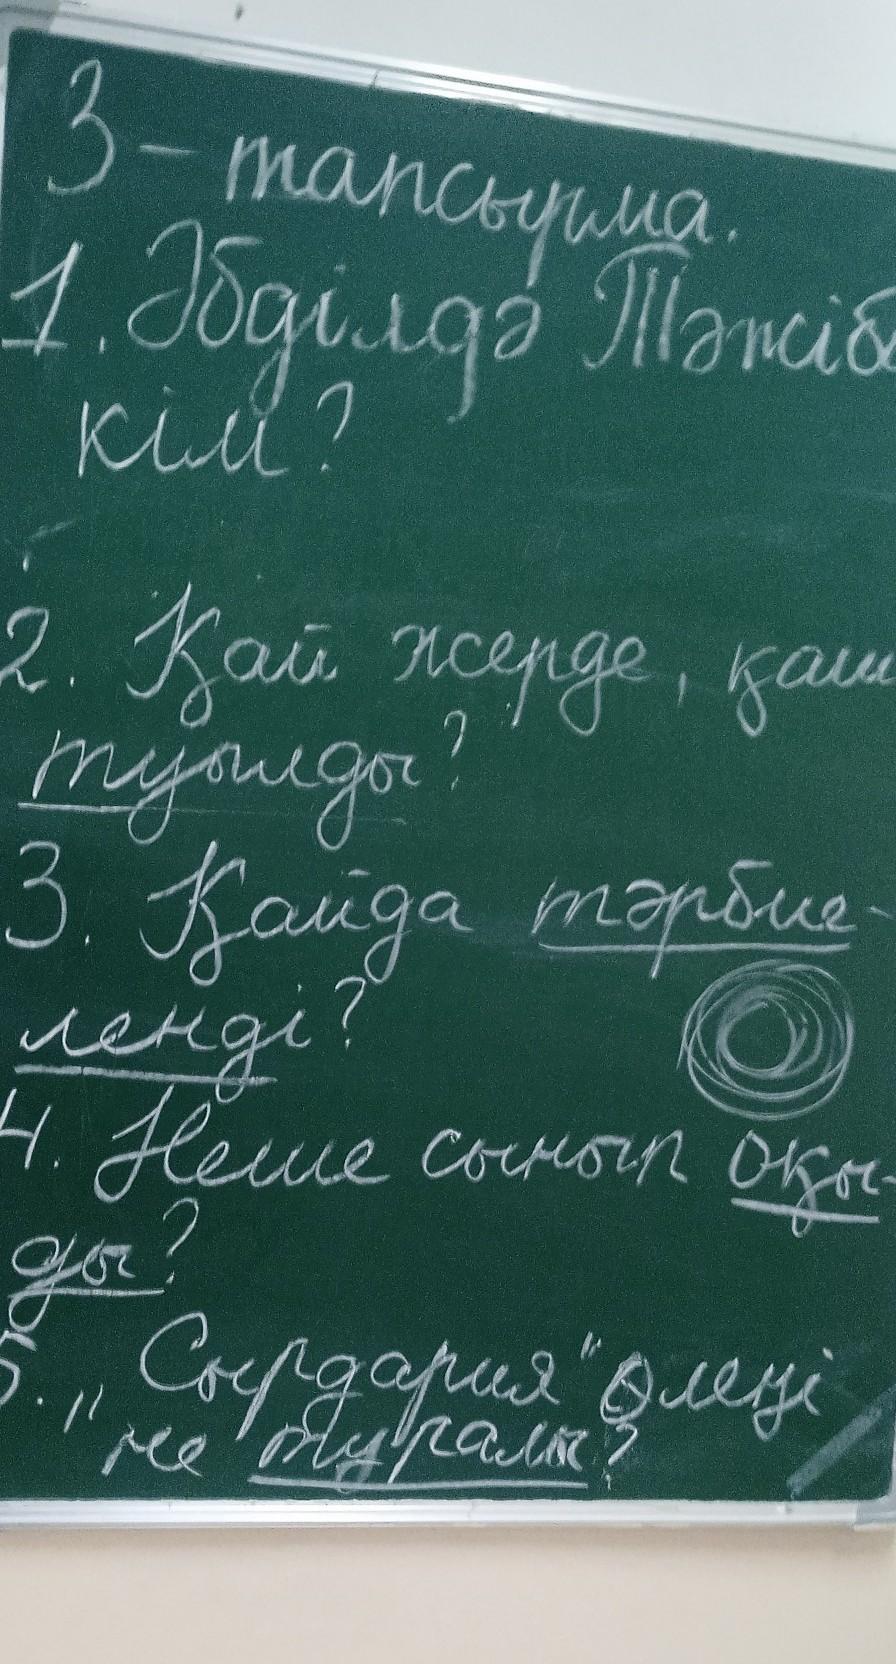 3 - тапсырма.
1. Әбділдә Тәжіб
кім?
2. Қай жерде, қаш
туылды?
3. Қайда тәрбие-
ленді?
4. Неше сынып оқы-
ды?
5. „Сырдария" өлеңі
не туралы?